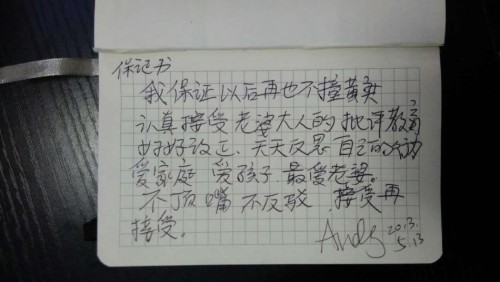 保证书
我保证以后再也不撞黄实
认真接受老婆大人的批评教育
做好改正、天天反思自己的行动
爱家庭 爱孩子 最爱老婆。
不顶嘴 不反驳 接受再
接受。
Andy
2013.
5.13